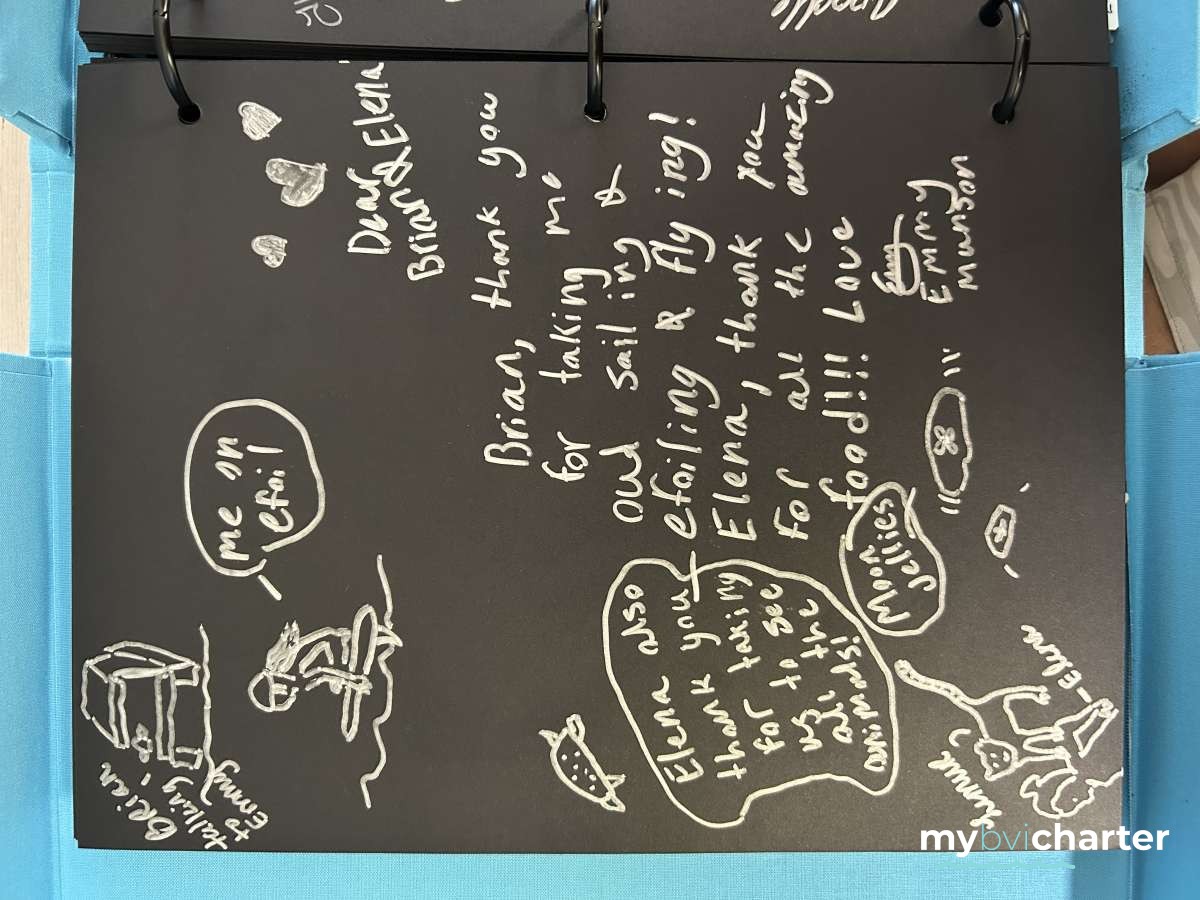 Dear Elena
Brian & Elena
Brian, thank you
for taking me
out sailing &
efoiling & flying!
Elena, thank you
for all the amazing
food!!! Love
Emmy
Munson
me on
efoil
Brian
talking
to
Emmy
Elena also
thank you
for taking
us to see
all the
animals!
Moon
Jellies
- Elena
mybvicharter